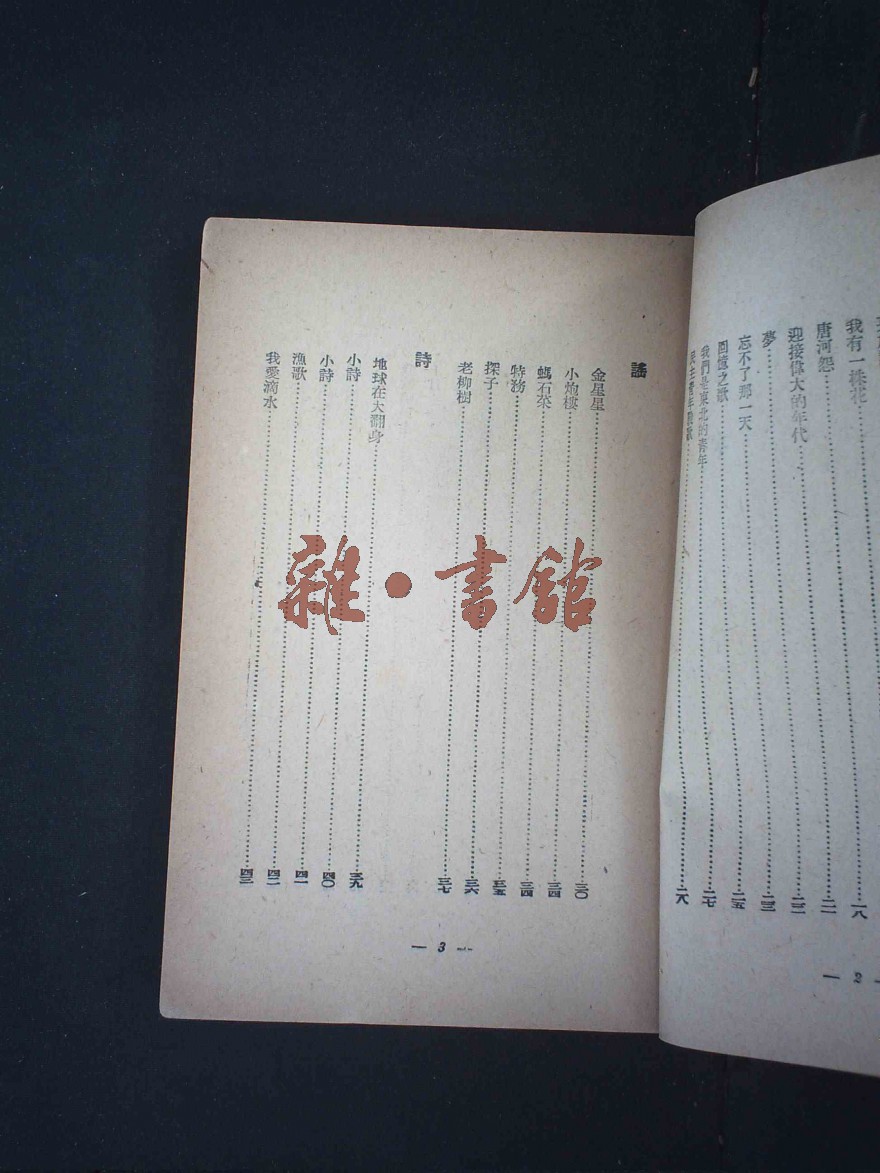 我有一株花
唐河怨……一八
迎接偉大的年代……二一
夢……二二
忘不了那一天……二三
回憶之歌……二五
我們是東北的青年……二七
民主青年戰歌……二八
— 2 —
謠
金星星……三〇
小炮樓……三四
螞石菜……三四
特務……三五
探子……三六
老柳樹……三七
詩
地球在大翻身……三九
小詩……四〇
小詩……四一
漁歌……四二
我愛滴水……四三
— 3 —
雜·書館